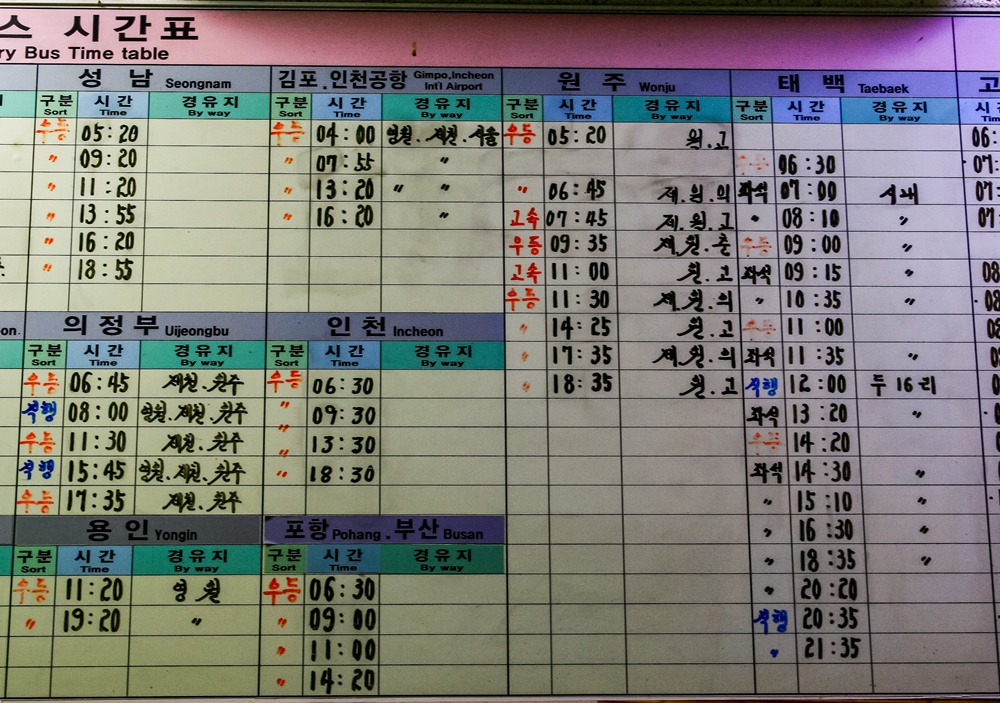 스 시간표
ry Bus Time table
성 남 Seongnam
구분 Sort 시간 Time 경유지 By way
우등 05:20
〃 09:20
〃 11:20
〃 13:55
〃 16:20
〃 18:55
김포.인천공항 Gimpo,Incheon Int'l Airport
구분 Sort 시간 Time 경유지 By way
우등 04:00 영월.제천.서울
07:55 〃
13:20 〃 〃
16:20 〃
원 주 Wonju
구분 Sort 시간 Time 경유지 By way
우등 05:20 원.고
〃 06:45 제.원.의
고속 07:45 제.원.고
우등 09:35 제.원.춘
고속 11:00 원.고
우등 11:30 제.원.의
〃 14:25 원.고
〃 17:35 제.원.의
〃 18:35 원.고
태 백 Taebaek
구분 Sort 시간 Time 경유지 By way
우등 06:30
좌석 07:00 석패
〃 08:10 〃
우등 09:00 〃
좌석 09:15 〃
〃 10:35 〃
우등 11:00
좌석 11:35 〃
직행 12:00 두 16리
좌석 13:20 〃
우등 14:20
좌석 14:30 〃
〃 15:10 〃
〃 16:30 〃
〃 18:35 〃
〃 20:20
직행 20:35
〃 21:35
고
시 Tim
06:
07:
07:
07
08
08
on.
의정부 Uijeongbu
구분 Sort 시간 Time 경유지 By way
우등 06:45 제천.원주
직행 08:00 영월.제천.원주
우등 11:30 제천.원주
직행 15:45 영월.제천.원주
우등 17:35 제천.원주
인 천 Incheon
구분 Sort 시간 Time 경유지 By way
우등 06:30
〃 09:30
〃 13:30
〃 18:30
용 인 Yongin
구분 Sort 시간 Time 경유지 By way
우등 11:20 영월
〃 19:20 〃
포항 Pohang.부산 Busan
구분 Sort 시간 Time 경유지 By way
우등 06:30
〃 09:00
〃 11:00
〃 14:20